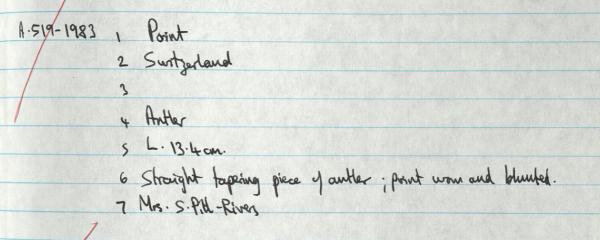 A.519-1983 1 Point
2 Switzerland
3
4 Antler
5 L. 13.4cm.
6 Straight tapering piece of antler ; point worn and blunted.
7 Mrs. S. Pitt-Rivers